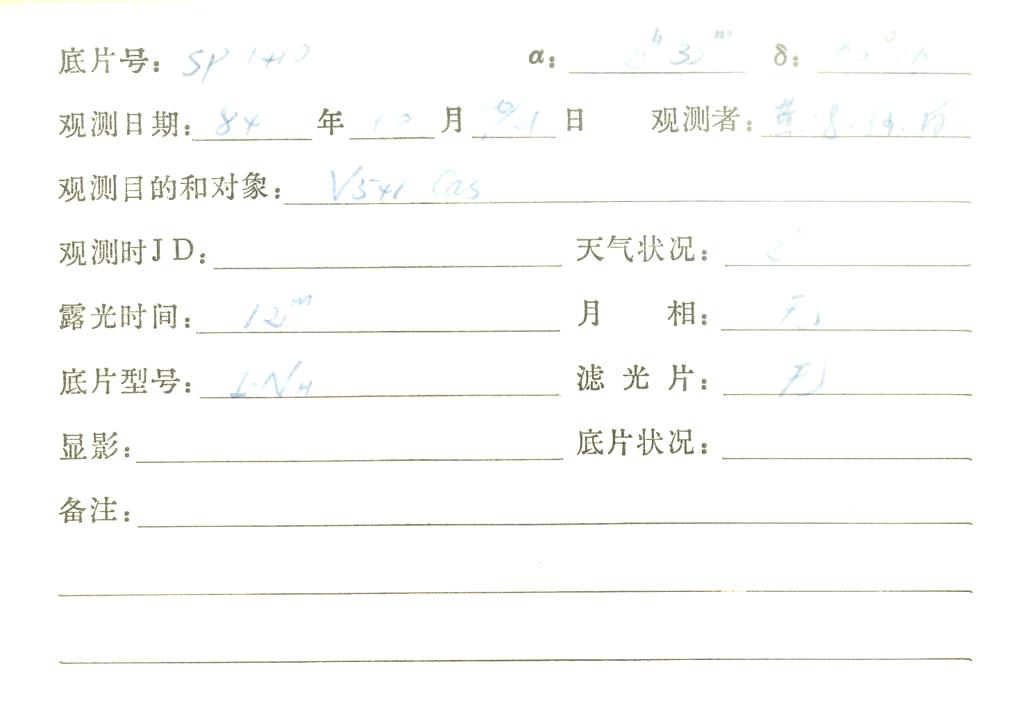 底片号: SP 1410 α: 33ᵐ δ:
观测日期: 84 年 10 月 20/21 日 观测者:
观测目的和对象: V541 Cas
观测时JD: 天气状况:
露光时间: 12ᵐ 月 相: 无
底片型号: 滤光片: 无
显影: 底片状况:
备注: